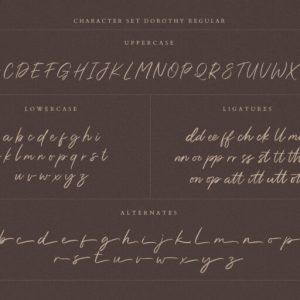 CHARACTER SET DOROTHY REGULAR
UPPERCASE
CDEFGHIJKLMNOPQRSTUVWX
LOWERCASE
a b c d e f g h i
j k l m n o p q r s t
u v w x y z
LIGATURES
dd ee ff ch ck ll
nn oo pp rr ss st tt th
on op att itt utt
ALTERNATES
b c d e f g h i j k l m n o p
r s t u v w x y z